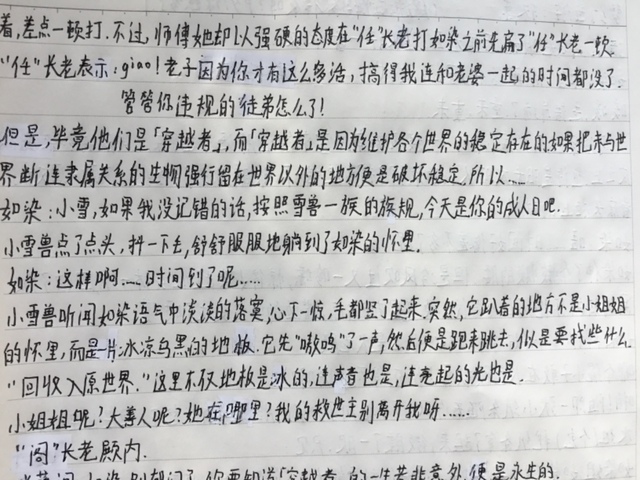 着,差点一顿打.不过,师傅她却以强硬的态度在"任"长老打如染之前先扁了"任"长老一顿
"任"长老表示:giao!老子因为你才有这么多活,搞得我连和老婆一起的时间都没了.
管管你违规的徒弟怎么了!
但是,毕竟他们是「穿越者」,而「穿越者」是因为维护各个世界的稳定存在的如果把未与世
界断连隶属关系的生物强行留在世界以外的地方便是破坏稳定,所以……
如染:小雪,如果我没记错的话,按照雪兽一族的族规,今天是你的成人日吧.
小雪兽点了点头,抖一下毛,舒舒服服地躺到了如染的怀里.
如染:这样啊……时间到了呢……
小雪兽听闻如染语气中淡淡的落寞,心下一惊,毛都竖了起来.突然,它趴着的地方不是小姐姐
的怀里,而是一片冰凉乌黑的地板.它先"嗷呜"了一声,然后便是跑来跳去,似是要找些什么.
"回收入原世界."这里不仅地板是冰的,连声音也是,连亮起的光也是.
小姐姐呢?大善人呢?她在哪里?我的救世主别离开我呀……
"阎"长老殿内.
如染别郁闷了,你要知道「穿越者」的一生若非意外,便是永生的.